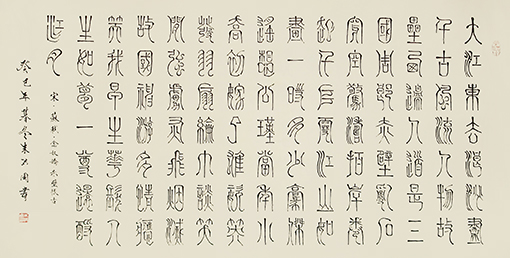 大江東去浪淘盡
千古風流人物故
壘西邊人道是三
國周郎赤壁亂石
穿空驚濤拍岸卷
起千堆雪江山如
畫一時多少豪傑
遙想公瑾當年小
喬初嫁了雄姿英
發羽扇綸巾談笑
間強虜灰飛煙滅
故國神遊多情應
笑我早生華髮人
生如夢一尊還酹
江月
宋蘇軾念奴嬌赤壁懷古
癸巳年